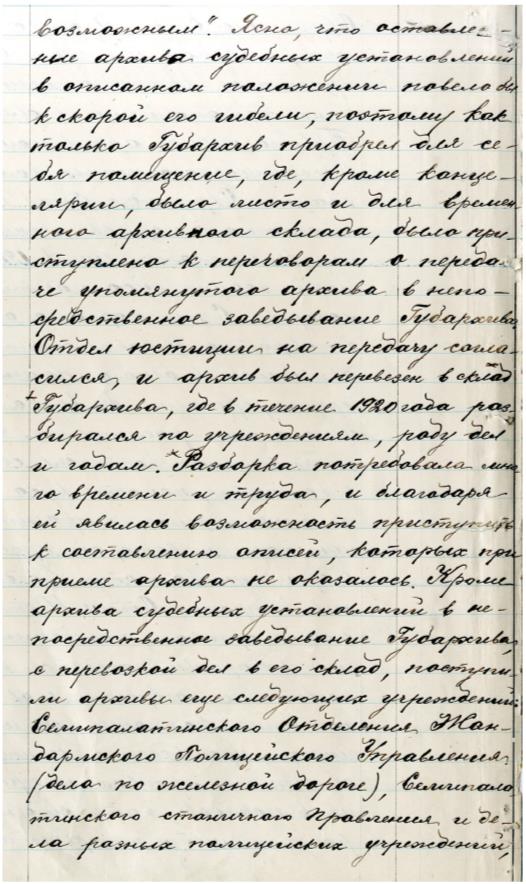 возможным". Ясно, что оставле-
ние архива судебных установлений
в описанном положении повело бы
к скорой его гибели, поэтому как
только Губархив приобрел для се-
бя помещение, где, кроме канце-
лярии, было место и для времен-
ного архивного склада, было при-
ступлено к переговорам о переда-
че упомянутого архива в непо-
средственное заведывание Губархива.
Отдел юстиции на передачу согла-
сился, и архив был перевезен в склад
Губархива, где в течение 1920 года раз-
бирался по учреждениям, роду дел
и годам. Разборка потребовала мно-
го времени и труда, и благодаря
ей явилась возможность приступить
к составлению описей, которых при
приеме архива не оказалось. Кроме
архива судебных установлений в не-
посредственное заведывание Губархива,
с перевозкой дел в его склад, поступи-
ли архивы еще следующих учреждений:
Семипалатинского Отделения Жан-
дармского Полицейского Управления
(дела по железной дороге), Семипала-
тинского станичного правления и де-
ла разных полицейских учреждений,